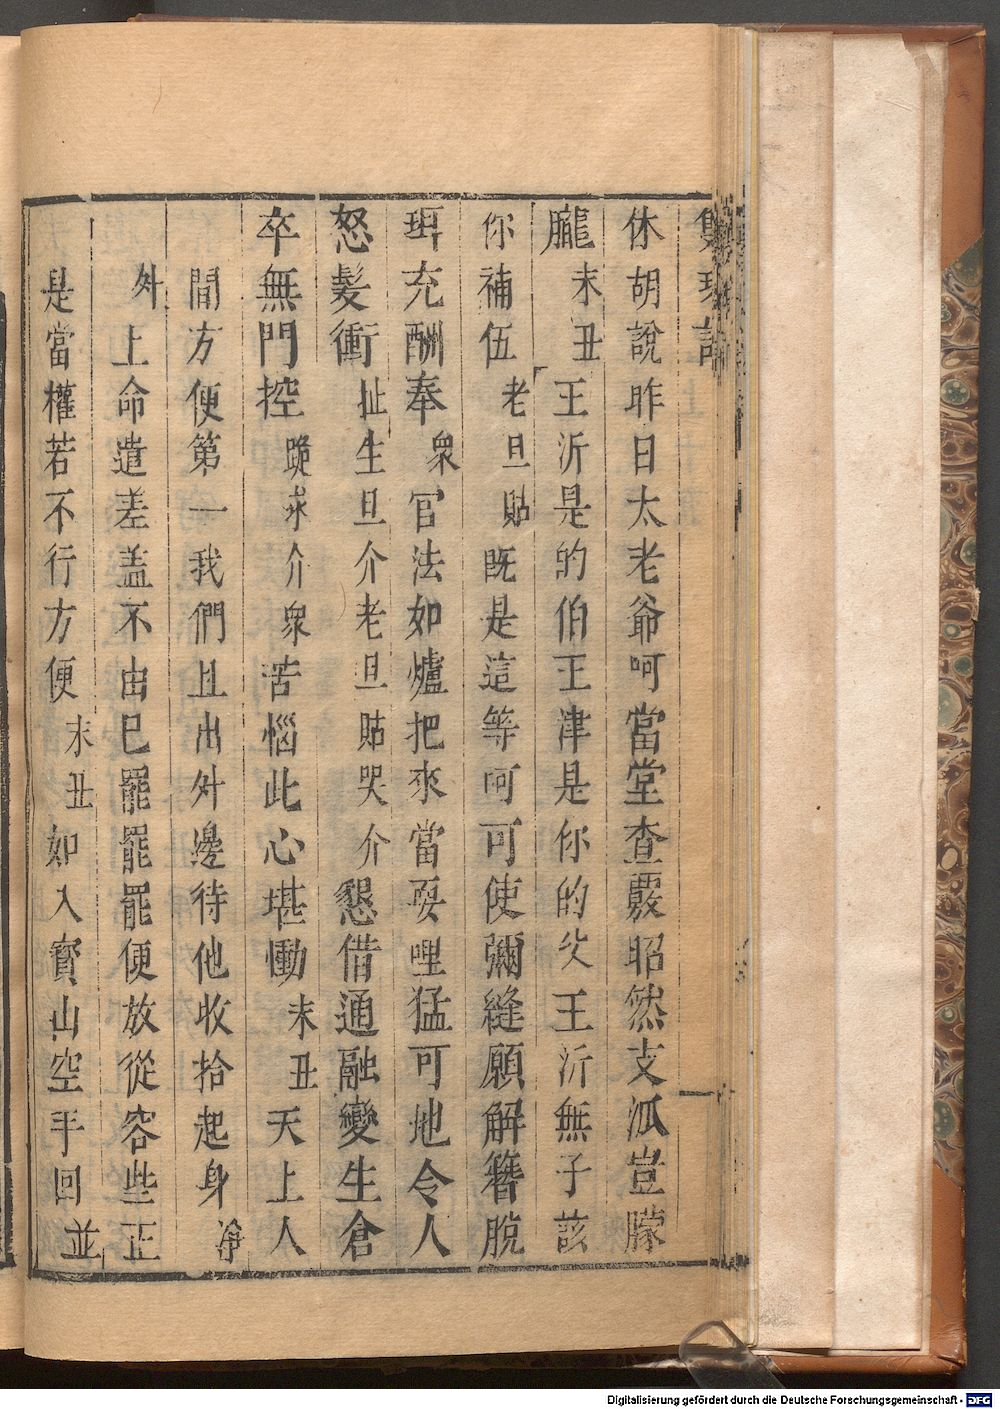 休胡說昨日太老爺呵當堂查覈昭然支派豈朦
朧末丑王沂是的伯王津是你的父王沂無子該
你補伍老旦貼既是這等呵可使彌縫願解簪脫
珥充酬奉衆官法如爐把來當耍哩猛可地令人
怒髮衝扯生旦介老旦貼哭介懇借通融變生倉
卒無門控跪求介衆苦惱此心堪慟末丑天上人
間方便第一我們且出外邊待他收拾起身淨
外上命遣差盖不由巳罷罷罷便放從容些正
是當權若不行方便末丑如入寳山空手回並
Digitalisierung gefördert durch die Deutsche Forschungsgemeinschaft - DFG